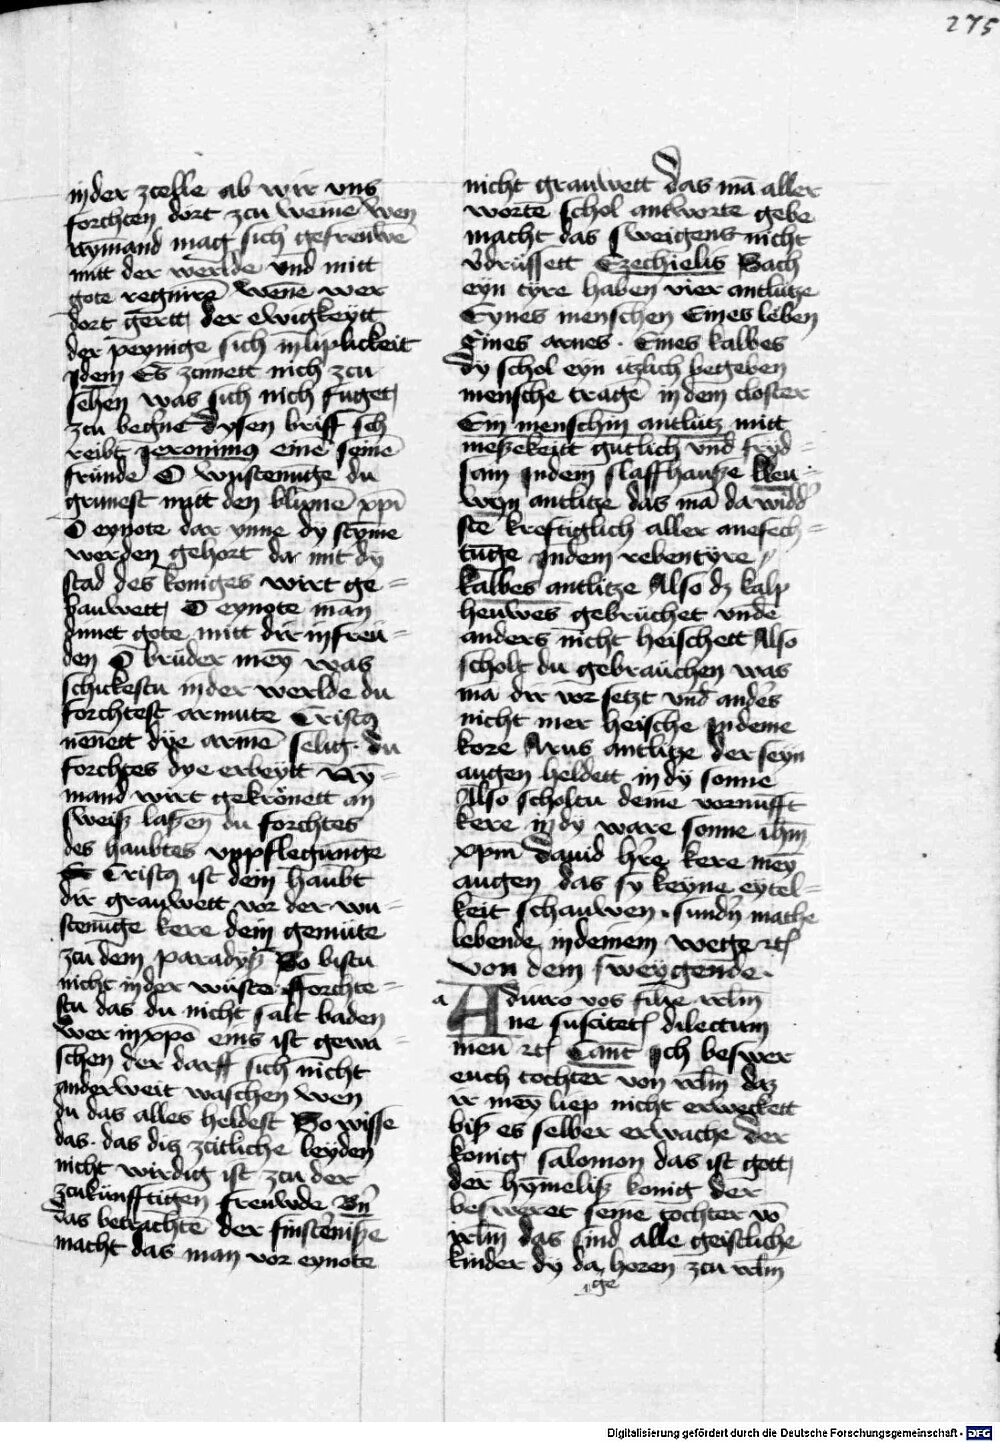 275
in der zcelle ab wir vns
forchten dort zcu weine wen
nymand mag sich gefreuwē
mitt der werlde vnd mitt
gote regnirē wene wer
dort gertt der ewigkeytt
der peynige sich in liplickeit
Idem Es zcimett nich zcu
sehen was sich nich fuget
zcu begine dysen briff sch
reibt Jeronimus eine seine
fründe O wustenūge du
grunest mitt den blumē xpī
O eynote dar ynne dy steyne
werden gehort da mit dy
stad des koniges wirt ge=
bauwett O eynote man
dinet gote mitt dir in freü=
den O brüder mey was
schickestu in der werlde du
forchtest armute Cristus
nenett dye armē selig du
forchtes dye erbeytt Ny=
mand wirt gekrönett an
sweiß laßen du forchtes
des haubtes vnpflegunge
Cristus ist dein haubt
dir grauwett vor der wu=
stenūge kere dein gemute
zcu dem paradyß So bistu
nicht in der wuste fforchte=
stu das du nicht salt baden
wer in xpō eins ist gewa=
schen der darff sich nicht
anderweit waschen wen
du das alles heldest So wisse
das das diß zcitliche leyden
nicht wirdig ist zcu der
zcukünfftigen freuwde Bn̄
das betrachte der finsterniße
macht das man vor eynote
nicht grauwett das mā aller
worte schol antworte gebe
macht das sweigens nicht
v̄drüssett Ezechielis Sach
eyn tyre haben vier antlutze
Eynes menschen Eines leben
Eines arnes . Eines kalbes
dy schol eyn itzlich begeben
mensche trage in dem closter
Ein menschin antlutz mitt
meßekeitt gutlich vnd fryd=
sam In dem slaffhauße lleu=
wen antlitze das mā da widd̄
ste kreftiglich aller anefech=
tūge In dem rebentyre
kalbes antlitze Also dz kalp
heuwes gebrüchet vnde
anders nicht heischett Also
scholt du gebrauchen was
mā dir vor setzt vnd andes
nicht mer heische In deme
kore Arns antlitze der seyn
augen heldett in dy sonne
Also scholtu deine vornufft
kere in dy ware sonne ihm̄
xpm̄ dauid h're kere mey
augen das sy keyne eytel=
keit schauwen . sundn̄ mache
lebende in deinem wege etc
von dem sweygende .
a
Adiuro vos filie irlm̄
ne suscitetis dilectum
meū etc Cant̄ Ich beswer
euch tochter von irlm̄ daz
ir mey liep nicht erweckett
biß es selber erwache der
konig salomon das ist gott
der hȳmeliß konig der
besweret seine tochter vō
irlm̄ das sind alle geistliche
kinder dy da horen zcu irlm̄
ge
Digitalisierung gefördert durch die Deutsche Forschungsgemeinschaft - DFG